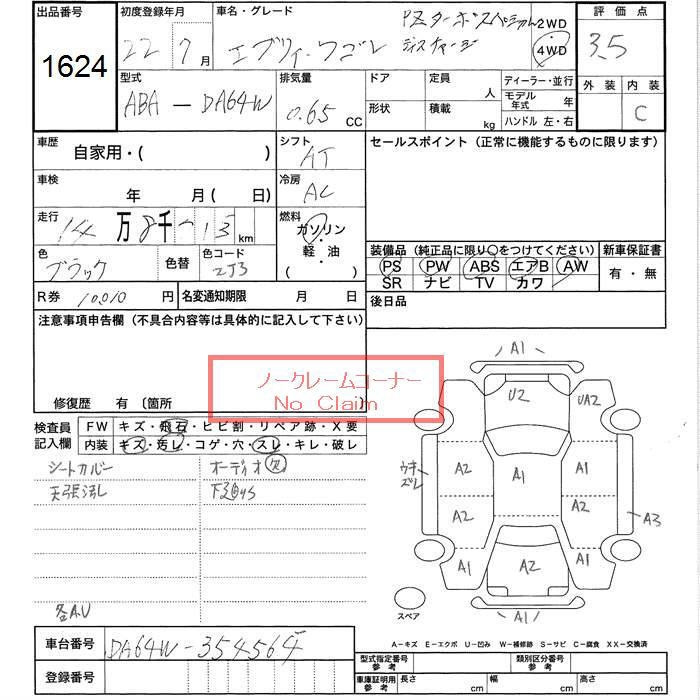 出品番号 初度登録年月 車名・グレード 評価点
1624 22 7月 エブリィ・ワゴン PZターボスペシャル 2WD 4WD 3.5
ディスチャージ
型式 排気量 ドア 定員 人 ディーラー・並行 外装 内装
ABA - DA64W 0.65 CC 形状 積載 kg モデル年式 年 C
ハンドル 左・右
車歴 自家用・( ) シフト AT セールスポイント(正常に機能するものに限ります)
車検 年 月( 日) 冷房 AC
走行 14万8千 km 燃料 ガソリン・軽・油 ( )
色 ブラック 色替 色コード ZJ3 装備品(純正品に限り○をつけてください) 新車保証書
PS PW ABS エアB AW 有・無
SR ナビ TV カワ
R券 10,010円 名変通知期限 月 日 後日品
注意事項申告欄(不具合内容等は具体的に記入して下さい)
ノークレームコーナー
No Claim
修復歴 有〔箇所
検査員記入欄 FW キズ・飛石・ヒビ割・リペア跡・X要
内装 キズ・汚レ・コゲ・穴・スレ・キレ・破レ
シートカバー オーディオ欠
天張汚し 下廻りサビ
各A.U
A1
U2 UA2
A2 A1 A1
ウキズレ
A2 A2 A3
A1 A2 A1
スペア A1
A-キズ E-エクボ U-凹み W-補修跡 S-サビ C-腐食 XX-交換済
車台番号 DA64W-354564
登録番号
型式指定番号 参考 類別区分番号 参考
車庫証明用 参考 長さ cm 幅 cm 高さ cm